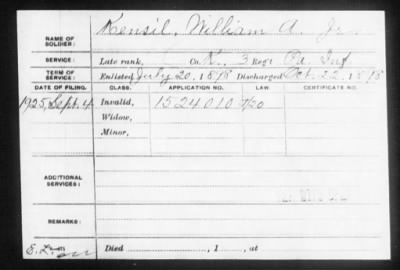 NAME OF SOLDIER: Kensil, William A. Jr.
SERVICE: Late rank, Co. K, 3 Reg't Pa. Inf.
TERM OF SERVICE: Enlisted July 20, 1898 Discharged Oct. 22, 1898
DATE OF FILING. CLASS. APPLICATION NO. LAW. CERTIFICATE NO.
1925, Sept. 4 Invalid, 1524010
Widow,
Minor,
ADDITIONAL SERVICES:
REMARKS:
Died , 1 , at